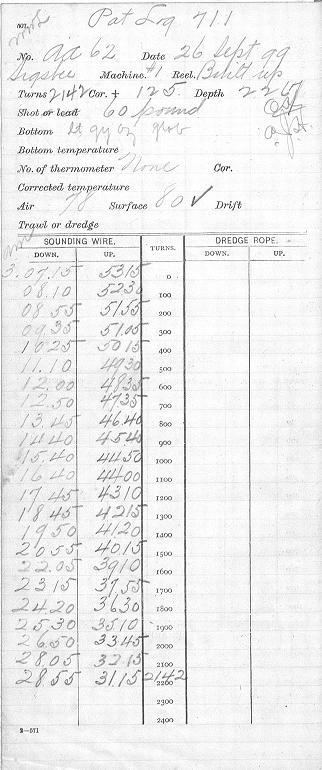 Pat Log 711
No. Aa 62 Date 26 Sept 99
Sigsbee Machine. #1 Reel. Bibitt up
Turns 2142 Cor. + 125. Depth 2267
Shot or lead 60 pound
Bottom lt gy oz glob
Bottom temperature
No. of thermometer None Cor.
Corrected temperature
Air 78 Surface 80 ✓ Drift
Trawl or dredge
SOUNDING WIRE. TURNS. DREDGE ROPE.
DOWN. UP. DOWN. UP.
3.07.15 53 15 0
08.10 52 30 100
08 55 51 55 200
09 35 51.05 300
10 25 50 15 400
11.10 49 30 500
12.00 48 35 600
12.50 47 35 700
13.45 46.40 800
14 40 45 40 900
15.40 44 50 1000
16 40 44 00 1100
17 45 43 10 1200
18 45 42 15 1300
19 50 41 20 1400
20 55 40 15 1500
22.05 39 10 1600
23 15 37 55 1700
24.20 36 30 1800
25.30 35 10 1900
26.50 33 45 2000
28.05 32 15 2100
28.55 31.15 2142 2200
2300
2400
2—571